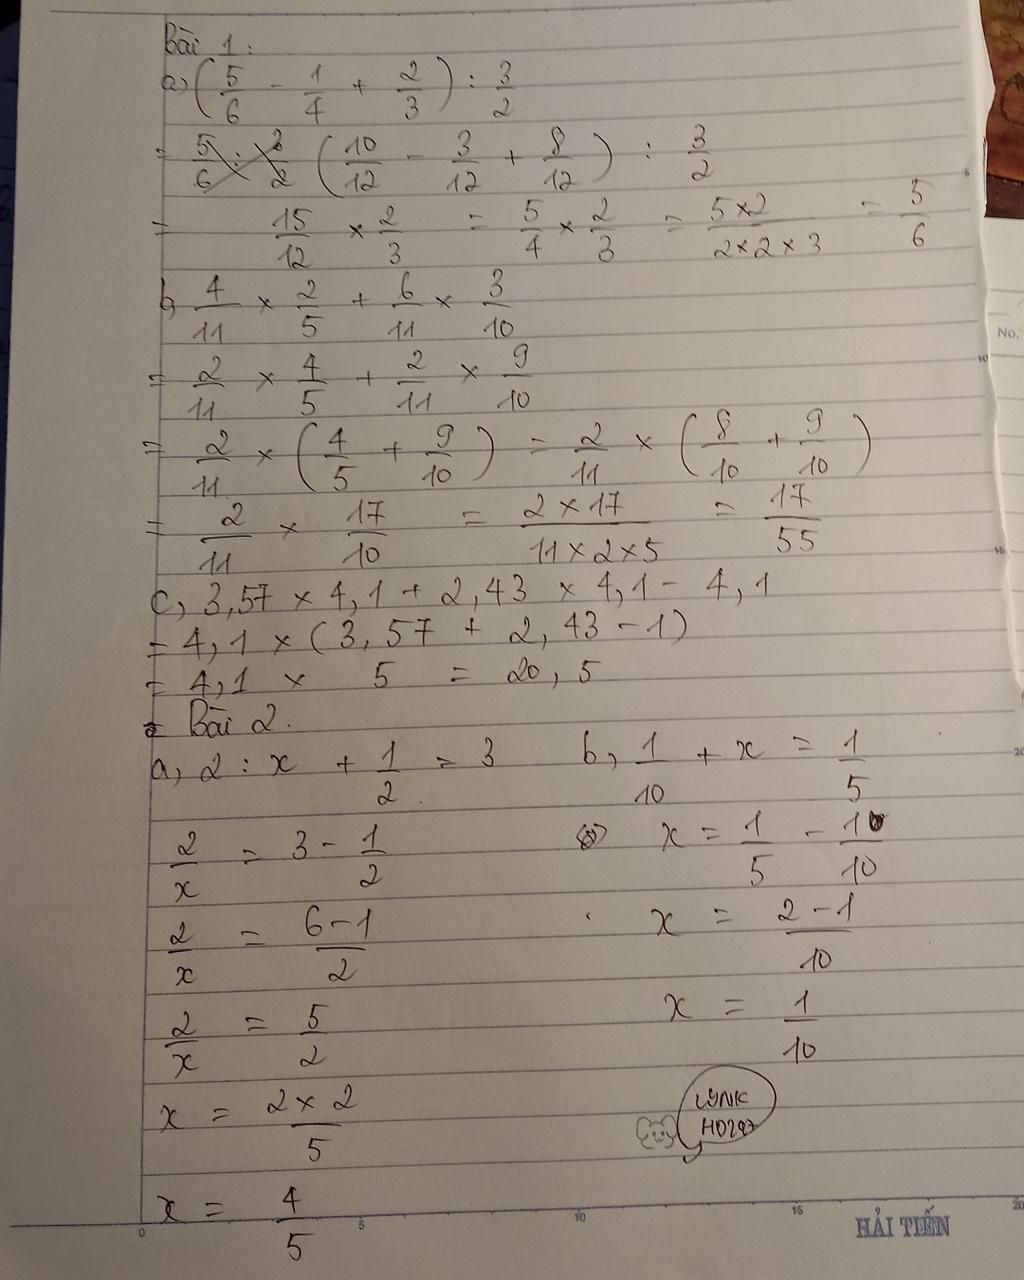 Bài 1:
a, (5/6 - 1/4 + 2/3) : 3/2
= (10/12 - 3/12 + 8/12) : 3/2
= 15/12 × 2/3 = 5/4 × 2/3 = 5×2/2×2×3 = 5/6
b, 4/11 × 2/5 + 6/11 × 3/10
= 2/11 × 4/5 + 2/11 × 9/10
= 2/11 × (4/5 + 9/10) = 2/11 × (8/10 + 9/10)
= 2/11 × 17/10 = 2×17/11×2×5 = 17/55
c, 3,57 × 4,1 + 2,43 × 4,1 - 4,1
= 4,1 × (3,57 + 2,43 - 1)
= 4,1 × 5 = 20,5
Bài 2.
a, 2 : x + 1/2 = 3
2/x = 3 - 1/2
2/x = 6-1/2
2/x = 5/2
x = 2×2/5
x = 4/5
b, 1/10 + x = 1/5
x = 1/5 - 1/10
x = 2-1/10
x = 1/10
No.
5
10
15
20
0 5 10 15 20
HẢI TIẾN